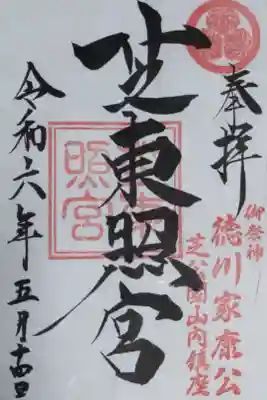 奉拝
御祭神
徳川家康公
芝公園山内鎮座
芝東照宮
東照宮
令和六年五月十四日